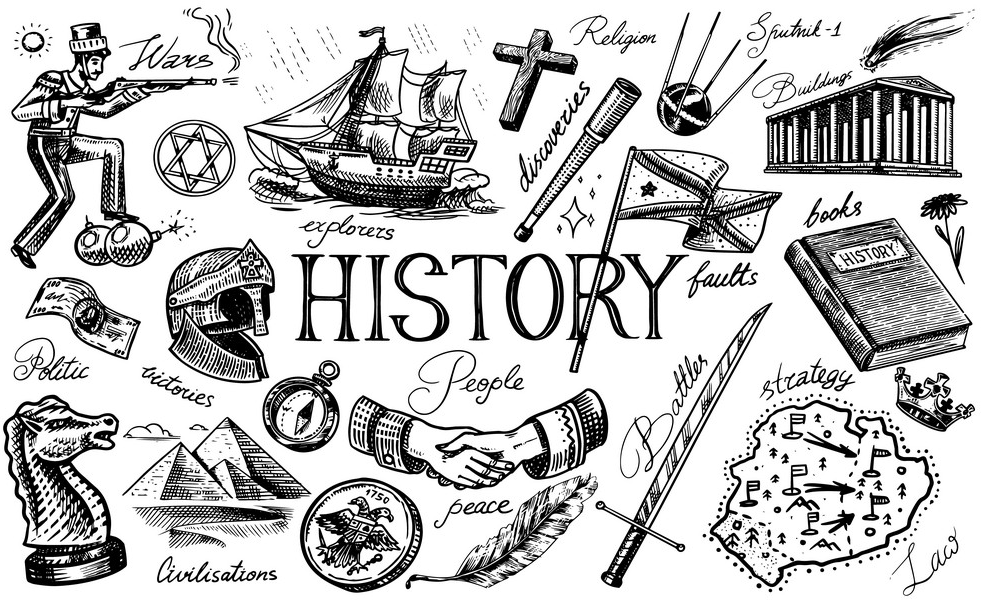 Wars
Religion
Sputnik-1
Buildings
discoveries
explorers
books
HISTORY
HISTORY
faults
100
100
100
Politic
victories
People
Battles
strategy
1750
peace
Civilisations
Law